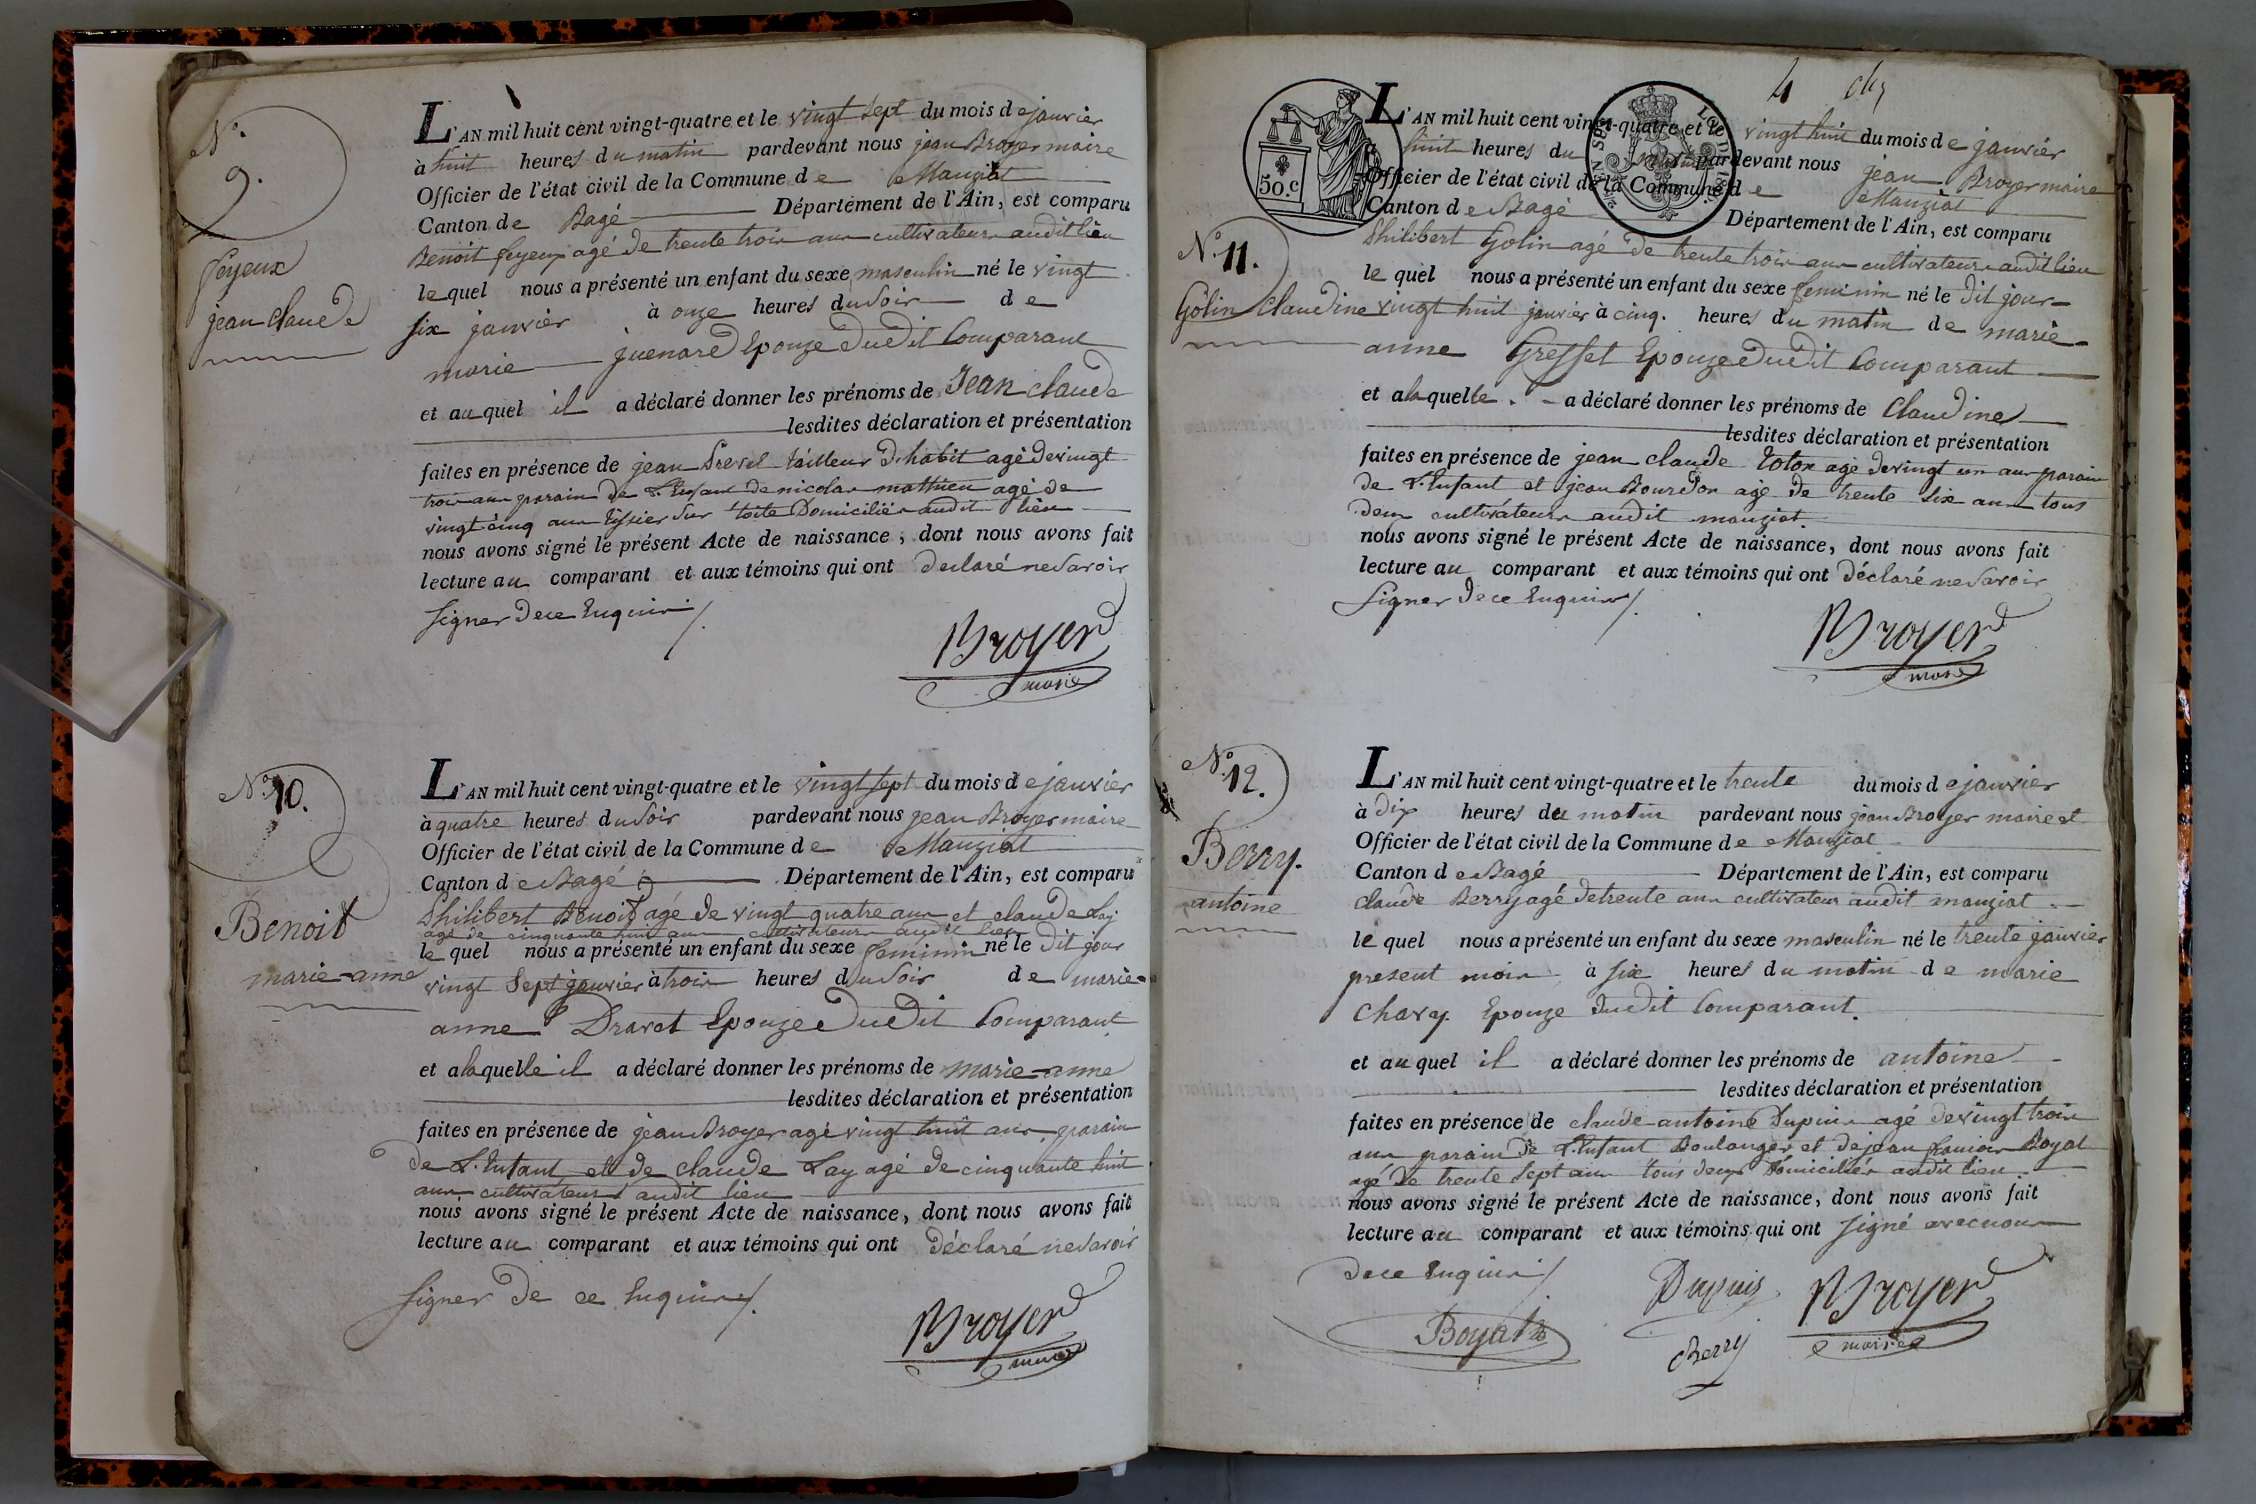 N.º 9.
feyeux
jean claude
L'AN mil huit cent vingt-quatre et le vingt sept du mois de janvier
à huit heures du matin pardevant nous jean Broyer maire
Officier de l'état civil de la Commune de Manziat
Canton de Bagé Département de l'Ain, est comparu
Benoit feyeux agé de trente trois ans cultivateur audit lieu
lequel nous a présenté un enfant du sexe masculin né le vingt
six janvier à onze heures du soir de
marie guenard Epouze dudit Comparant
et auquel il a déclaré donner les prénoms de Jean claude
lesdites déclaration et présentation
faites en présence de jean tailleur d'habit agé de vingt
trois ans parain de L'Enfant de nicolas mathieu agé de
vingt cinq ans tissier sur toile Domiciliés audit lieu
nous avons signé le présent Acte de naissance, dont nous avons fait
lecture au comparant et aux témoins qui ont declaré ne savoir
signer de ce Enquis ./.
Broyer
maire
N.º 10.
Benoit
marie-anne
L'AN mil huit cent vingt-quatre et le vingt sept du mois de janvier
à quatre heures du soir pardevant nous jean Broyer maire
Officier de l'état civil de la Commune de Manziat
Canton de Bagé Département de l'Ain, est comparu
Philibert Benoit agé de vingt quatre ans et claude Lay
agé de cinquante huit ans cultivateurs audit lieu
lequel nous a présenté un enfant du sexe feminin né le dit jour
vingt sept janvier à trois heures du soir de marie-
anne Dravet Epouze dudit Comparant
et a laquelle il a déclaré donner les prénoms de marie-anne
lesdites déclaration et présentation
faites en présence de jean Broyer agé vingt huit ans parain
de L'Enfant et de claude Lay agé de cinquante huit
ans cultivateurs audit lieu
nous avons signé le présent Acte de naissance, dont nous avons fait
lecture au comparant et aux témoins qui ont déclaré ne savoir
signer de ce Enquis ./.
Broyer
maire
4
50.c
N.º 11.
Golin Claudine
L'AN mil huit cent vingt-quatre et le vingt huit du mois de janvier
à huit heures du pardevant nous jean Broyer maire
Officier de l'état civil de la Commune de Manziat
Canton de Bagé Département de l'Ain, est comparu
Philibert Golin agé de trente trois ans cultivateur audit lieu
lequel nous a présenté un enfant du sexe feminin né le dit jour-
vingt huit janvier à cinq. heures du matin de marie-
anne Greffet Epouze dudit Comparant
et a laquelle . a déclaré donner les prénoms de Claudine
lesdites déclaration et présentation
faites en présence de jean claude agé de vingt un ans parain
de L'Enfant et jean Bourdon agé de trente six ans tous
deux cultivateurs audit manziat.
nous avons signé le présent Acte de naissance, dont nous avons fait
lecture au comparant et aux témoins qui ont déclaré ne savoir
signer de ce Enquis ./.
Broyer
maire
N.º 12.
Berry.
antoine
L'AN mil huit cent vingt-quatre et le trente du mois de janvier
à dix heures du matin pardevant nous jean Broyer maire et
Officier de l'état civil de la Commune de Manziat
Canton de Bagé Département de l'Ain, est comparu
claude Berry agé de trente ans cultivateur audit manziat
lequel nous a présenté un enfant du sexe masculin né le trente janvier
present mois à six heures du matin de marie
Chary Epouze dudit Comparant.
et auquel il a déclaré donner les prénoms de antoine
lesdites déclaration et présentation
faites en présence de claude-antoine Dupuis agé de vingt trois
ans parain de L'Enfant Boulanger et de jean Boyat
agé de trente sept ans tous deux domiciliés audit lieu
nous avons signé le présent Acte de naissance, dont nous avons fait
lecture au comparant et aux témoins qui ont signé avec nous
de ce Enquis ./.
Dupuis
Broyer
maire
Boyat
Berry